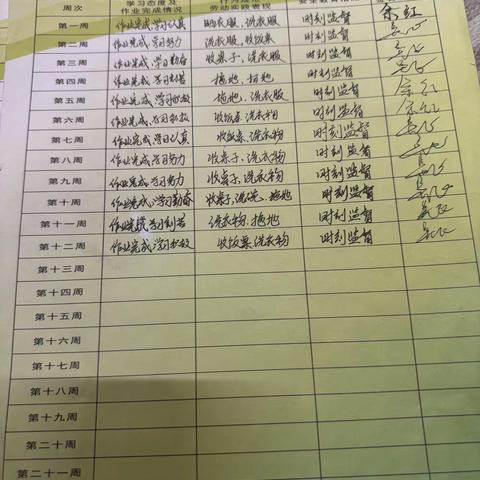 周次 学习态度及
作业完成情况 劳动方面表现
第一周 作业完成,学习认真 晒衣服,洗衣服 时刻监督
第二周 作业完成,学习努力 洗衣服,收饭桌 时刻监督
第三周 作业完成,学习勤奋 收桌子,洗衣服 时刻监督
第四周 作业完成,学习刻苦 拖地,扫地 时刻监督
第五周 作业完成,学习积极 拖地,洗衣服 时刻监督
第六周 作业完成,学习积极 收饭桌,洗衣物 时刻监督
第七周 作业完成,学习认真 收饭桌,洗衣物 时刻监督
第八周 作业完成,学习努力 收桌子,洗衣物 时刻监督
第九周 作业完成,学习努力 收桌子,洗衣物 时刻监督
第十周 作业完成,学习勤奋 收桌子,洗碗,拖地 时刻监督
第十一周 作业完成 学习刻苦 洗衣物,拖地 时刻监督
第十二周 作业完成,学习积极 收饭桌,洗衣物 时刻监督
第十三周
第十四周
第十五周
第十六周
第十七周
第十八周
第十九周
第二十周
第二十一周